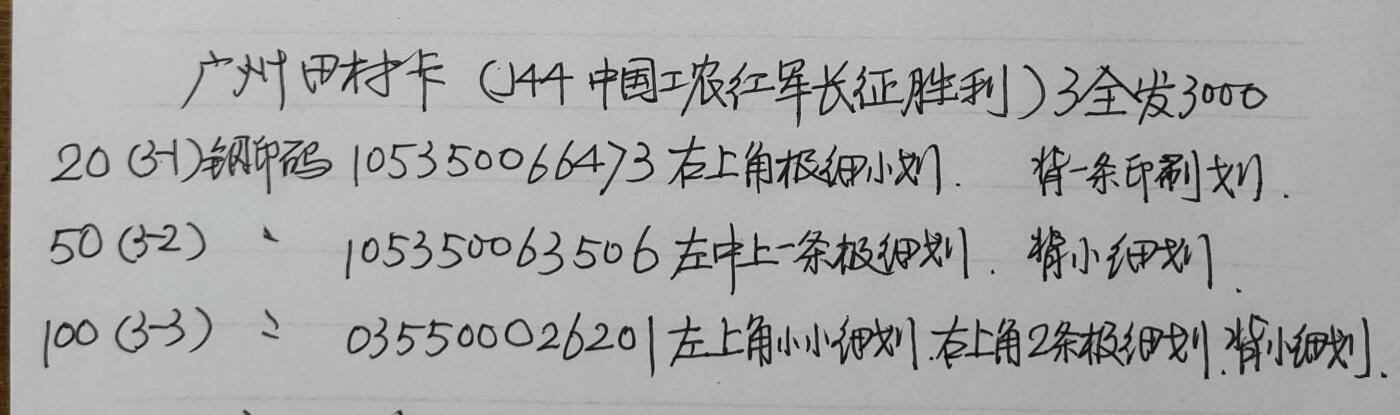 广州田村卡（J44中国工农红军长征胜利）3全发3000
20（3-1）钢印码 105350066473右上角极细小划. 背一条印刷划.
50（3-2）〃 105350063506左中上一条极细划. 背小细划.
100（3-3）〃 035500026201左上角小小细划.右上角2条极细划.背小细划.